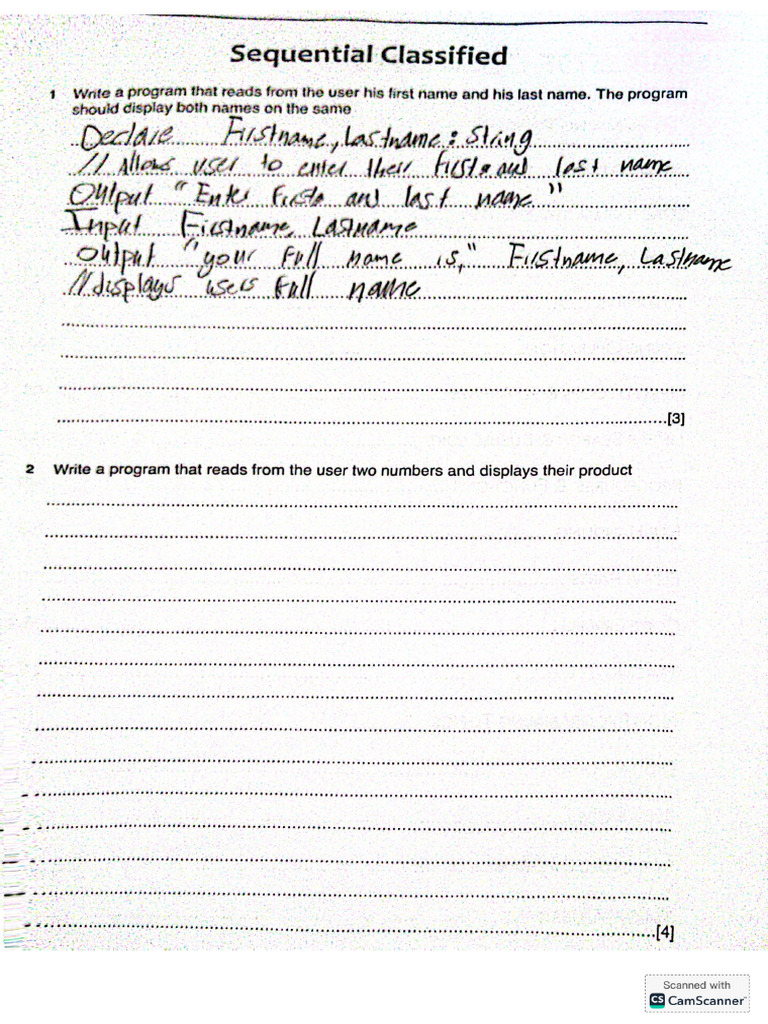 Sequential Classified
1 Write a program that reads from the user his first name and his last name. The program
should display both names on the same
Declare Firstname, Lastname : String
// Allows user to enter their first and last name
Output "Enter first and last name"
Input Firstname, Lastname
Output "your full name is," Firstname, Lastname
// displays users full name
[3]
2 Write a program that reads from the user two numbers and displays their product
[4]
Scanned with
CS CamScanner